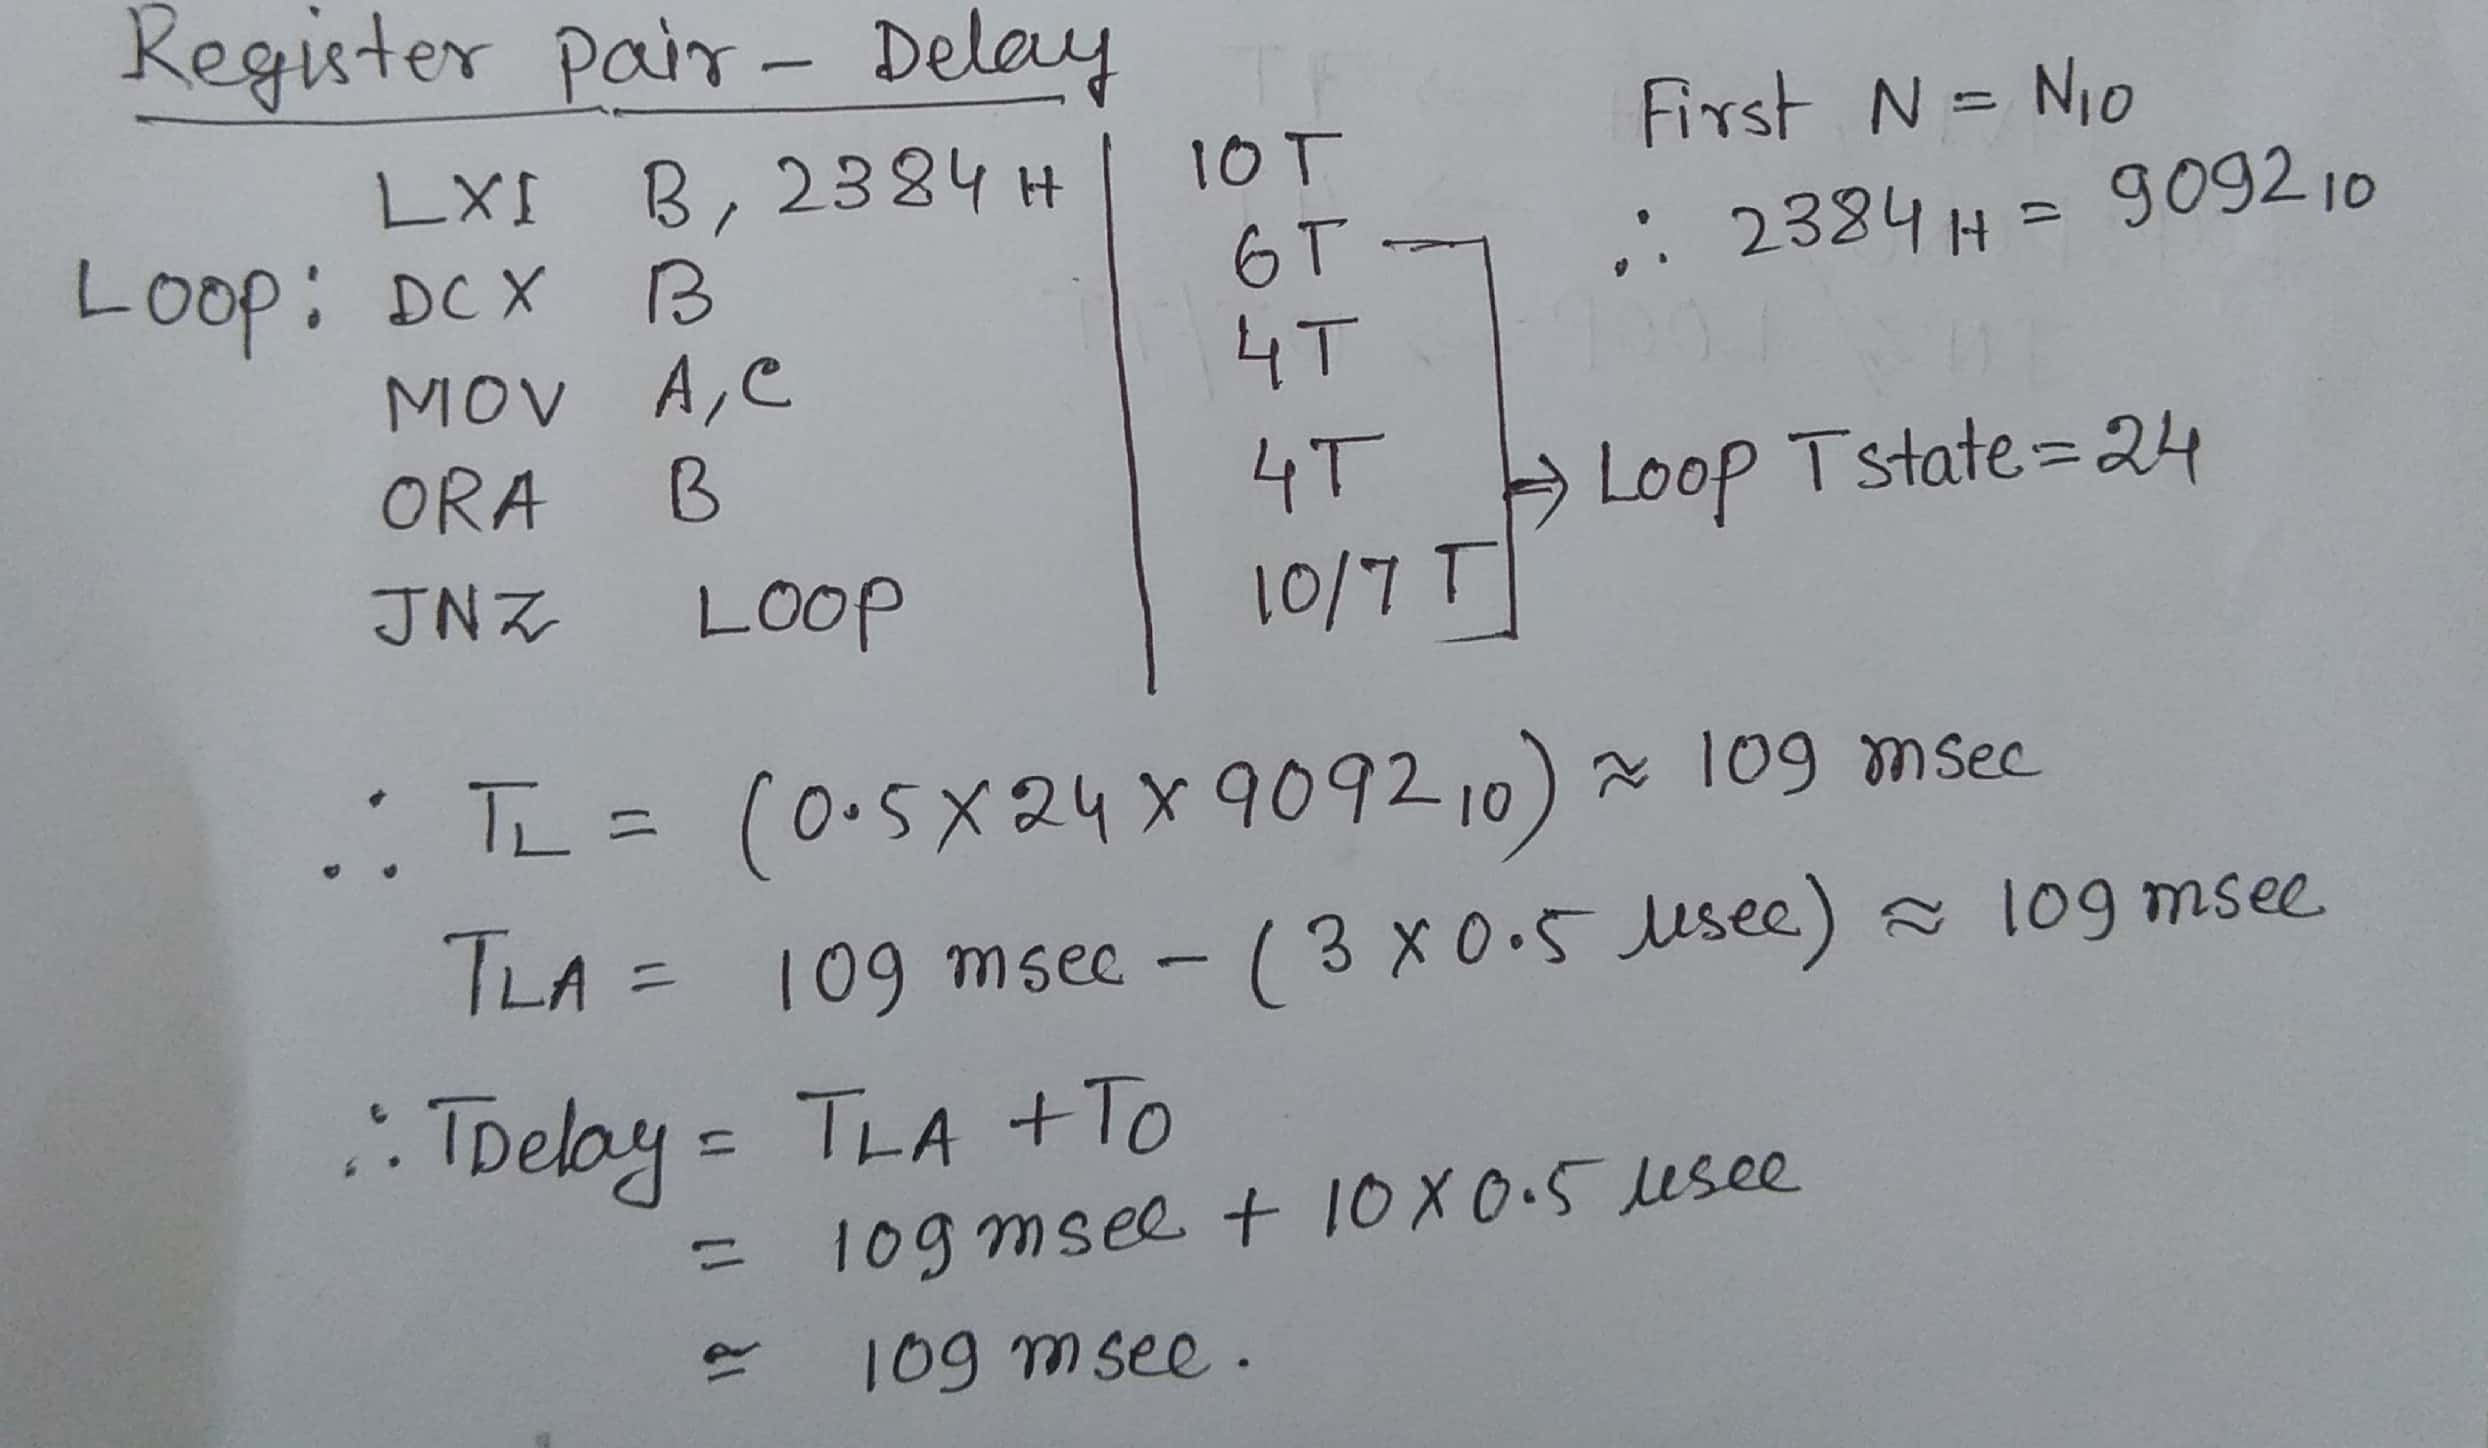 Register pair - Delay
LXI B, 2384 H | 10 T
Loop: DCX B | 6 T
MOV A, C | 4 T
ORA B | 4 T
JNZ LOOP | 10/7 T
First N = N10
∴ 2384 H = 9092 10
⇒ Loop T state = 24
∴ TL = (0.5 X 24 X 9092 10) ≈ 109 msec
TLA = 109 msec - (3 X 0.5 μsec) ≈ 109 msec
∴ TDelay = TLA + TO
= 109 msec + 10 X 0.5 μsec
≃ 109 msec.